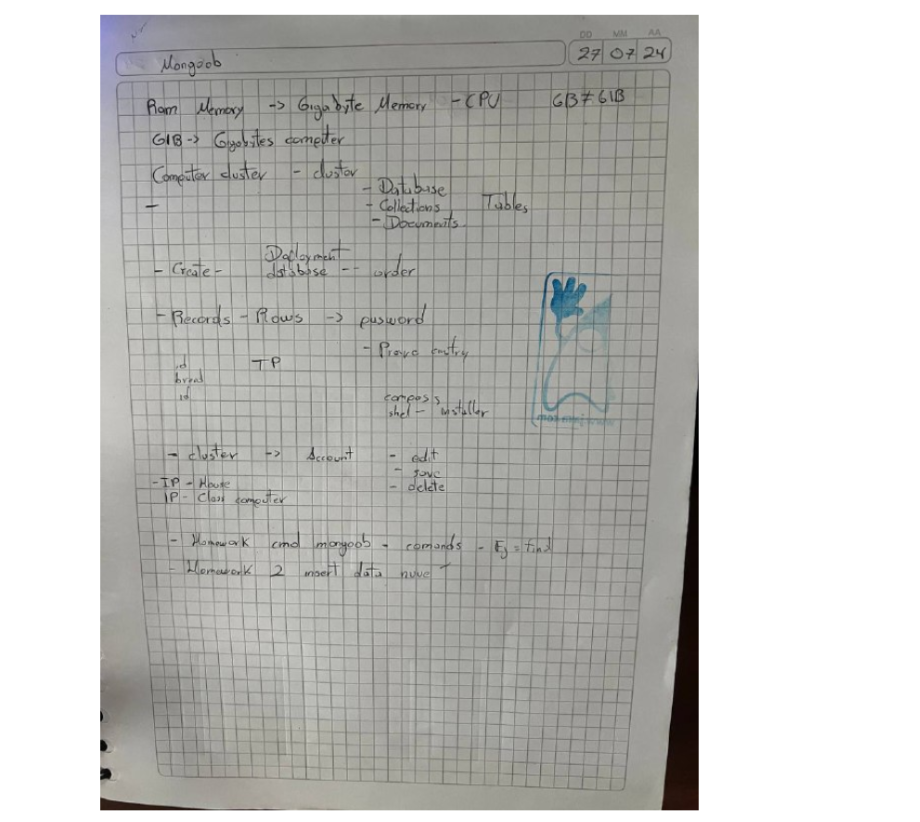 DD MM AA
27 07 24
Mongoob
Ram Memory -> Gigabyte Memory - CPU GB ≠ GIB
GIB -> Gigabites computer
Computer cluster - cluster
- Database
- Collections Tables
- Documents.
-
Deployment
- Create - database -- order
- Records - Rows -> pusword
- entry
id TP
bread
id
compass
shel - installer
- cluster -> Account - edit
- save
- delete
- IP - House
IP - Class computer
- Homework cmd mongoob - comands - Ej = find
- Homework 2 insert data nuve